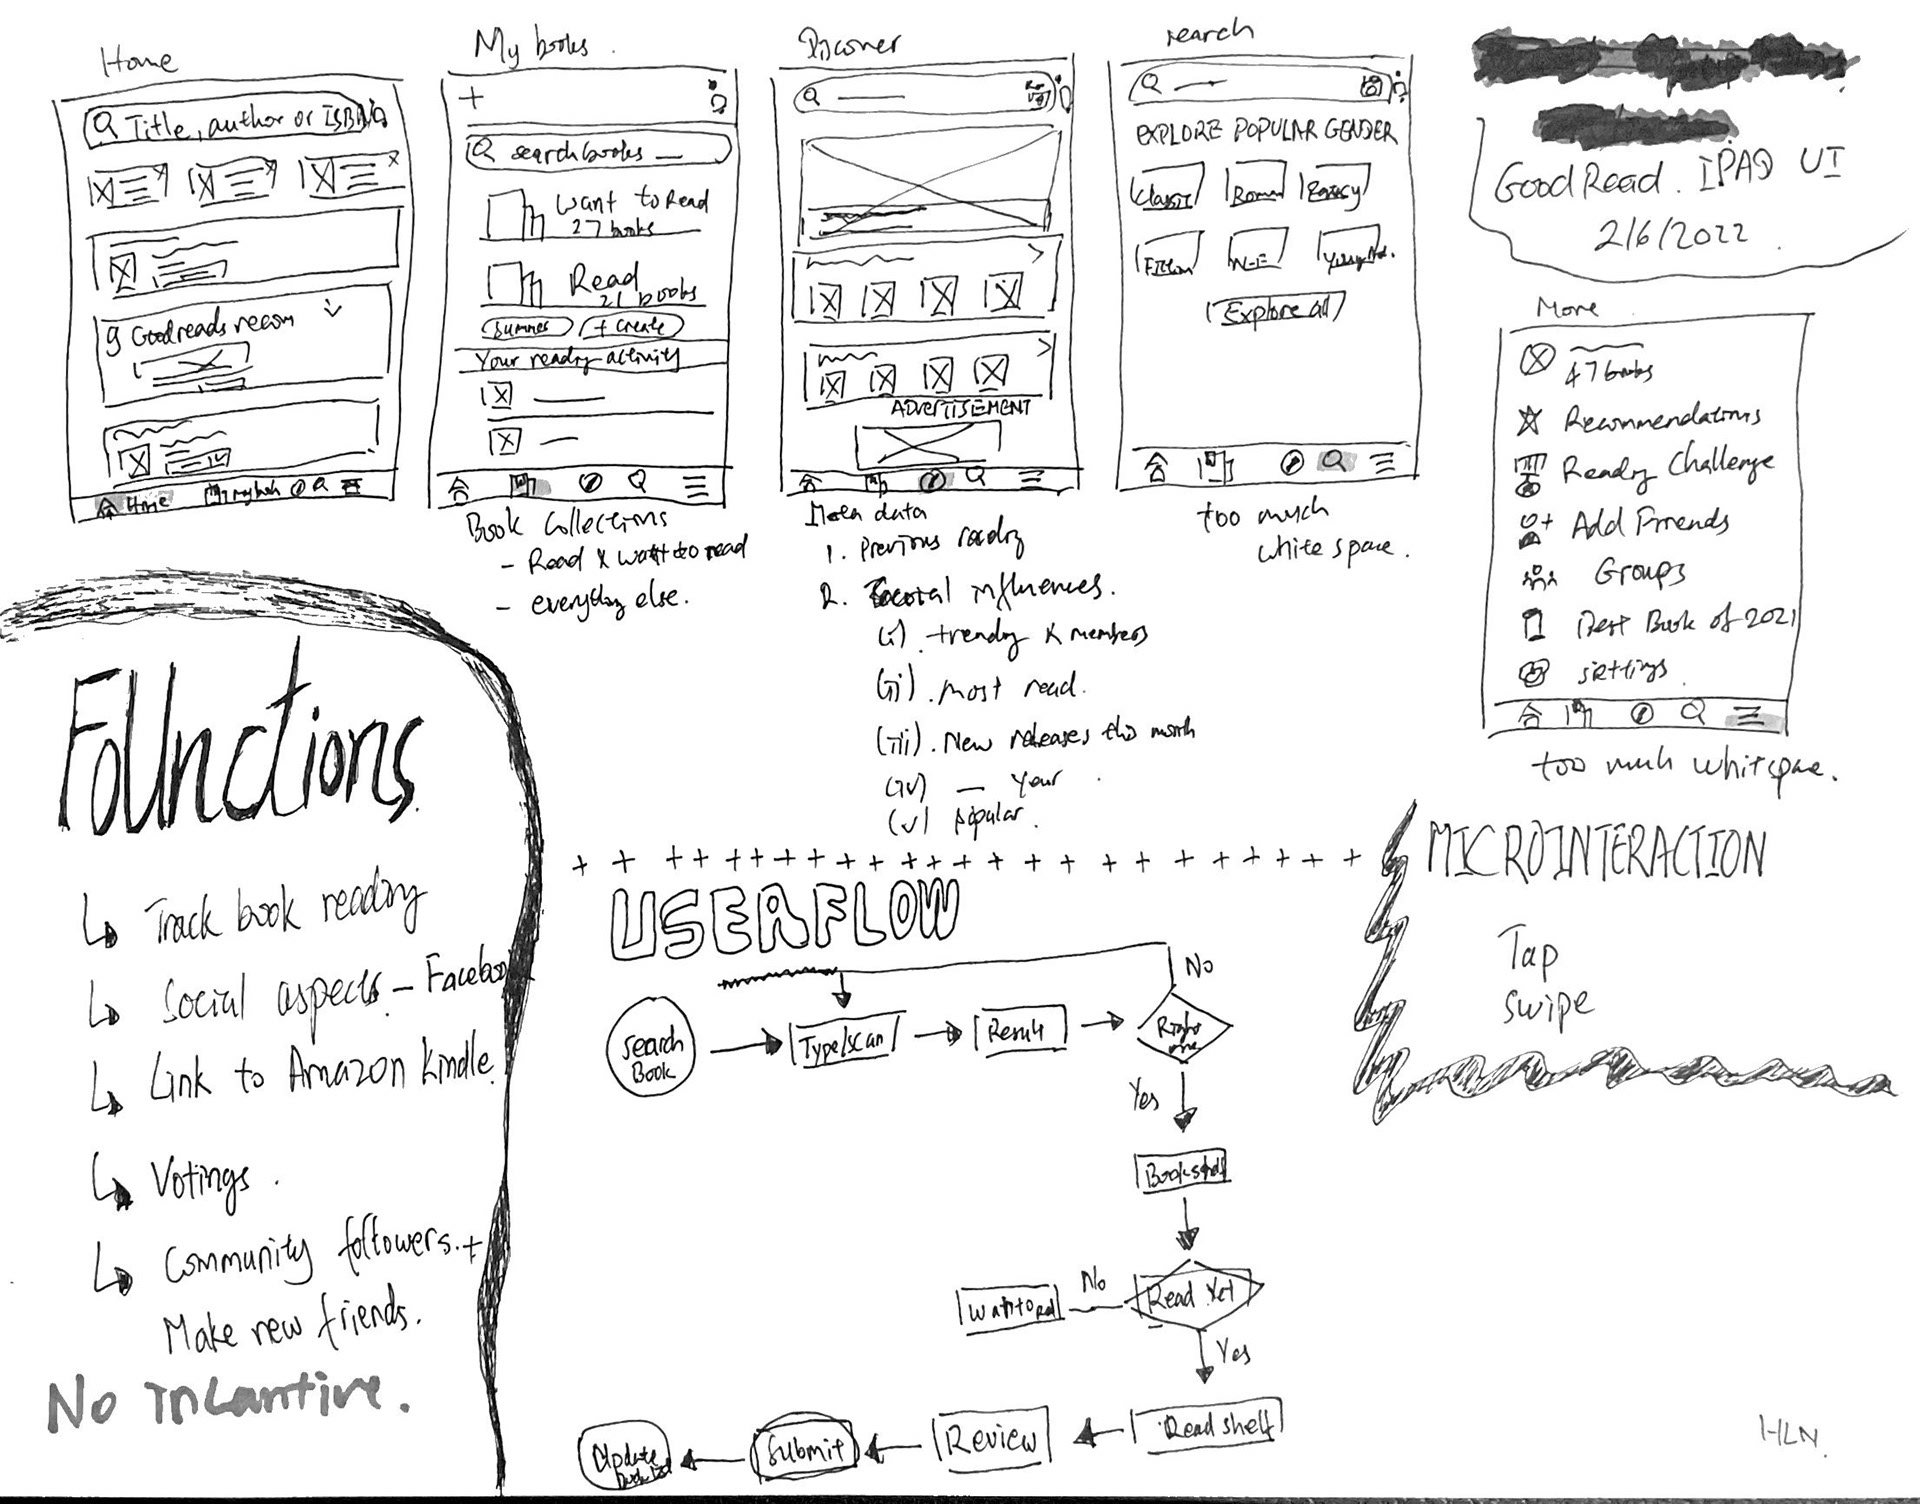 Home
Title, author or ISBN
g Goodreads recom
Home
my book
My books
+
search books
Want to Read
27 books
Read
21 books
summer
+ create
Your readng activity
Book Collections
- Read & want to read
- everything else.
Discover
ADVERTISEMENT
Meta data
1. Previous readng
2. Social influences.
(i) trendng & members
(ii) . most read.
(iii) . New releases this month
(iv) — your
(v) popular.
search
EXPLORE POPULAR GENDER
Classic
Fiction
N-F
Explore all
too much
white space.
GoodRead. IPAD UI
2/6/2022
More
47 books
Recommendations
Readng Challenge
Add Friends
Groups
Best Book of 2021
settings
too much whitspace.
FoUnctions.
Track book readng
Social aspects - Facebook
Link to Amazon kindle.
Votings.
Community followers. +
Make new friends.
No Incantive.
USERFLOW
search
Book
Type/scan
Result
Right
one
No
Yes
Read Yet
No
Want to rd
Yes
Read shelf
Review
Submit
Update
MICROINTERACTION
Tap
swipe
HLN.